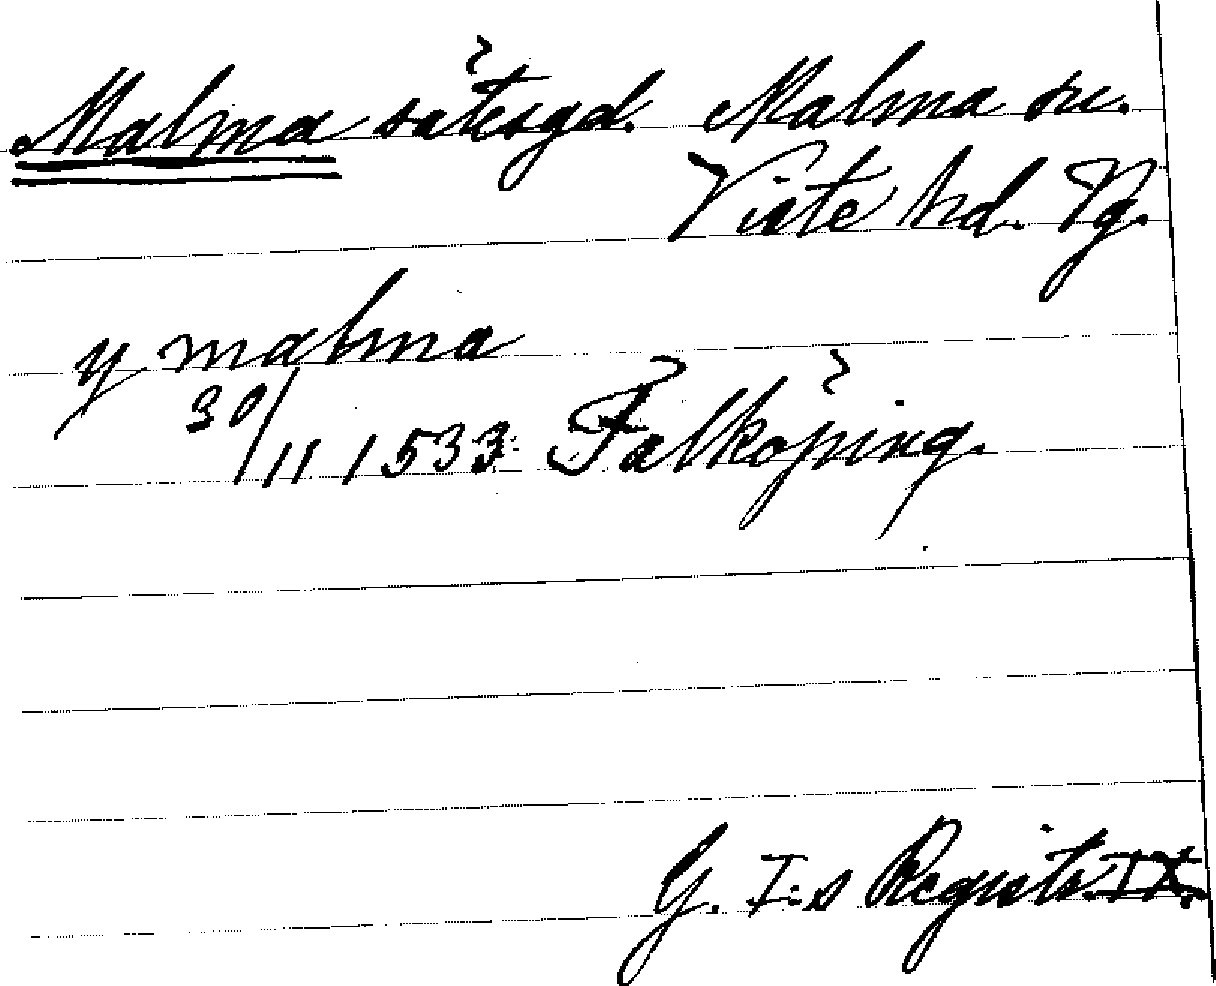 Malma sätesgd. Malma sn.
Viste hd. Vg.
y malma
30/11 1533 Falköping.
G. I:s Registr. IX.